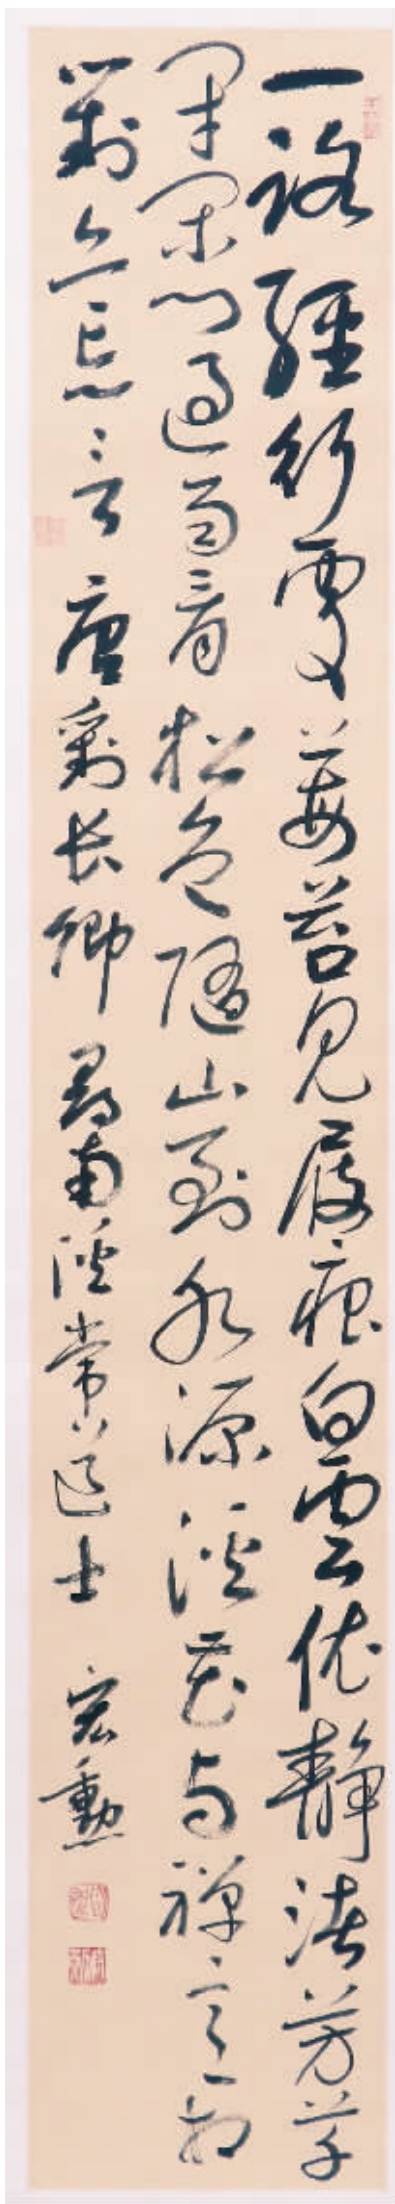 一路經行處莓苔見屐痕白雲依靜渚芳草
閉閑門過雨看松色隨山到水源溪花與禪意相
對亦忘言 唐劉長卿 尋南溪常道士 宏勳